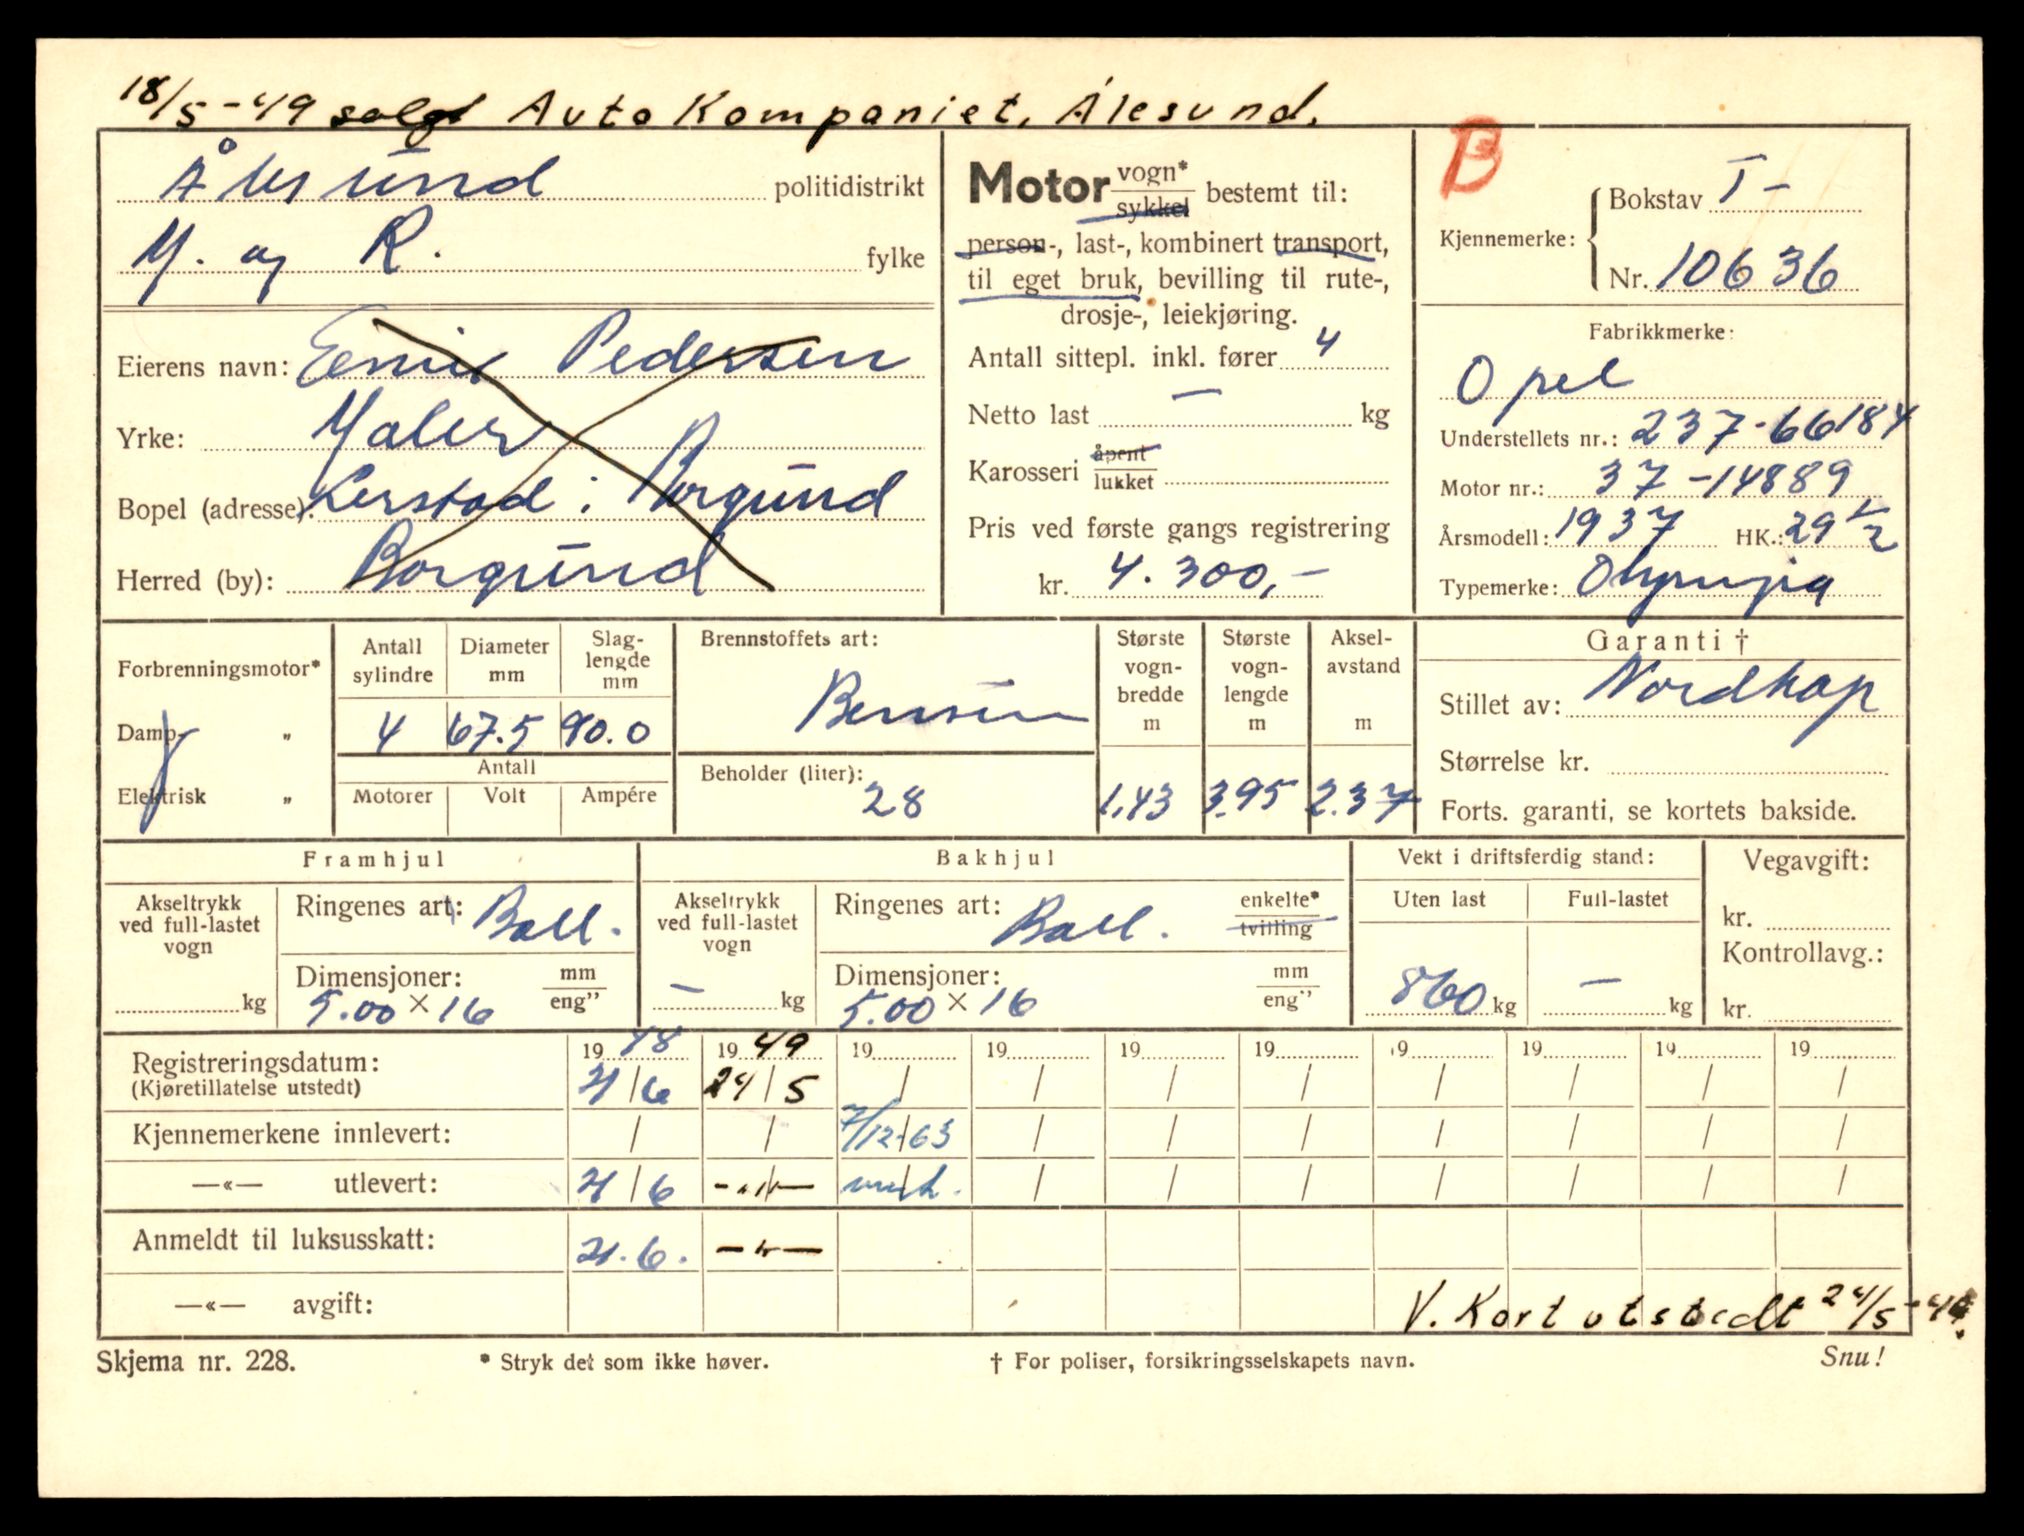 18/5-49 solgt Auto Kompaniet, Ålesund.
Ålesund politidistrikt
M. og R. fylke
Eierens navn: Pedersen
Yrke: Maler
Bopel (adresse): Kerstad i Borgund
Herred (by): Borgund
Motor vogn* sykkel bestemt til:
person-, last-, kombinert transport,
til eget bruk, bevilling til rute-,
drosje-, leiekjøring.
Antall sittepl. inkl. fører 4
Netto last — kg
Karosseri åpent lukket
Pris ved første gangs registrering
kr. 4.300,-
B
Kjennemerke: Bokstav T-
Nr. 10636
Fabrikkmerke:
Opel
Understellets nr.: 237-66184
Motor nr.: 37-14889
Årsmodell: 1937 HK.: 29 1/2
Typemerke: Olympia
Forbrenningsmotor*
Damp- „
Elektrisk „
Antall sylindre Diameter mm Slag-lengde mm
4 67.5 90.0
Antall
Motorer Volt Ampére
Brennstoffets art:
Bensin
Beholder (liter):
28
Største vogn-bredde m 1,43
Største vogn-lengde m 3.95
Aksel-avstand m 2.37
Garanti †
Stillet av: Nordkap
Størrelse kr.
Forts. garanti, se kortets bakside.
Framhjul
Akseltrykk ved full-lastet vogn
kg
Ringenes art: Ball.
Dimensjoner: mm eng"
5.00 × 16
Bakhjul
Akseltrykk ved full-lastet vogn
— kg
Ringenes art: Ball. enkelte* tvilling
Dimensjoner: mm eng"
5.00 × 16
Vekt i driftsferdig stand:
Uten last Full-lastet
860 kg — kg
Vegavgift:
kr.
Kontrollavg.:
kr.
19 48 19 49 19 19 19 19 19 19 19 19
Registreringsdatum: 21/6 24/5 / / / / / / / /
(Kjøretillatelse utstedt)
Kjennemerkene innlevert: / / 7/12-63 / / / / / / /
—«— utlevert: 21/6 -"- / / / / / / /
Anmeldt til luksusskatt: 21.6. -"-
—«— avgift:
V. Kort utstedt 24/5-49.
Skjema nr. 228.
* Stryk det som ikke høver.
† For poliser, forsikringsselskapets navn.
Snu!